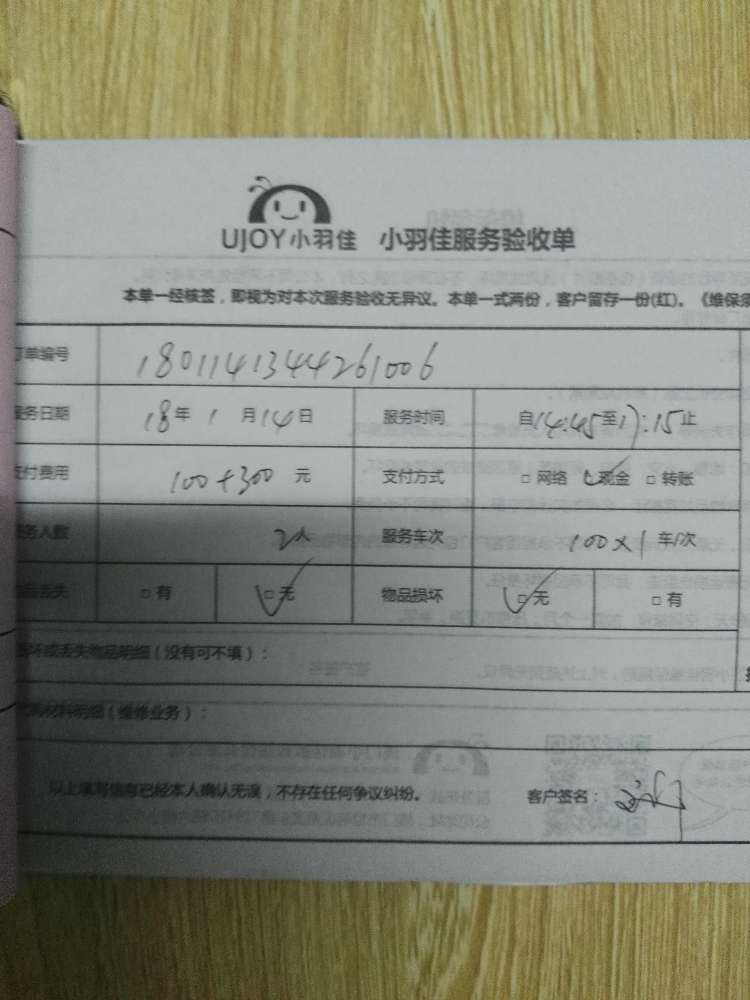 UJOY小羽佳 小羽佳服务验收单
本单一经核签，即视为对本次服务验收无异议。本单一式两份，客户留存一份(红)。《维保须
订单编号 1801141344261006
服务日期 18年 1 月14日 服务时间 自14:45至17:15止
支付费用 100+300 元 支付方式 □网络 ☑现金 □转账
服务人数 2人 服务车次 100×1 车/次
物品丢失 □有 ☑无 物品损坏 ☑无 □有
损坏或丢失物品明细（没有可不填）：
材料明细（维修业务）：
以上填写信息已经本人确认无误，不存在任何争议纠纷。 客户签名：